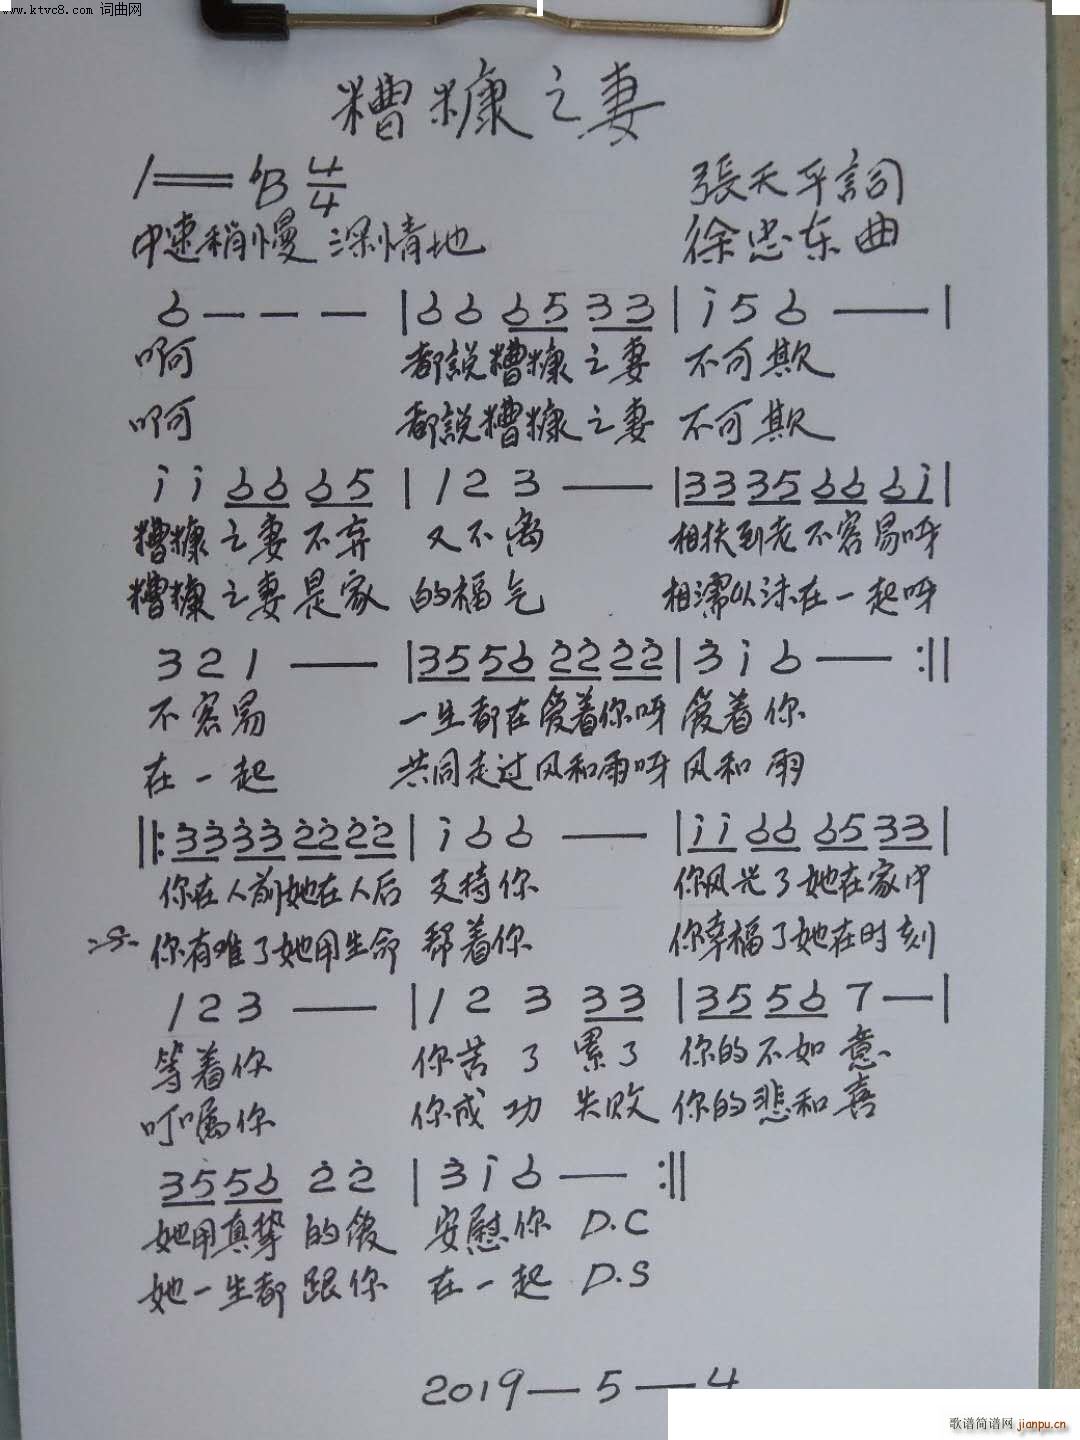 www.ktvc8.com 词曲网
糟糠之妻
1=♭B 4/4
張天平詞
中速稍慢 深情地
徐忠东曲
6 — — — | 6 6 6 5 3 3 | i 5 6 — |
啊 都說糟糠之妻 不可欺
啊 都說糟糠之妻 不可欺
i i 6 6 6 5 | 1 2 3 — | 3 3 3 5 6 6 6 i |
糟糠之妻不弃 又不离 相扶到老不容易呀
糟糠之妻是家 的福气 相濡以沫在一起呀
3 2 1 — | 3 5 5 6 2 2 2 2 | 3 i 6 — :||
不容易 一生都在爱着你呀 爱着你
在一起 共同走过风和雨呀 风和雨
||: 3 3 3 3 2 2 2 2 | i 6 6 — | i i 6 6 6 5 3 3 |
你在人前她在人后 支持你 你风光了她在家中
你有难了她用生命 帮着你 你幸福了她在时刻
1 2 3 — | 1 2 3 3 3 | 3 5 5 6 7 — |
等着你 你苦了累了 你的不如意
叮嘱你 你成功失败 你的悲和喜
3 5 5 6 2 2 | 3 i 6 — :||
她用真挚的爱 安慰你 D.C
她一生都跟你 在一起 D.S
2019—5—4
歌谱简谱网 jianpu.cn